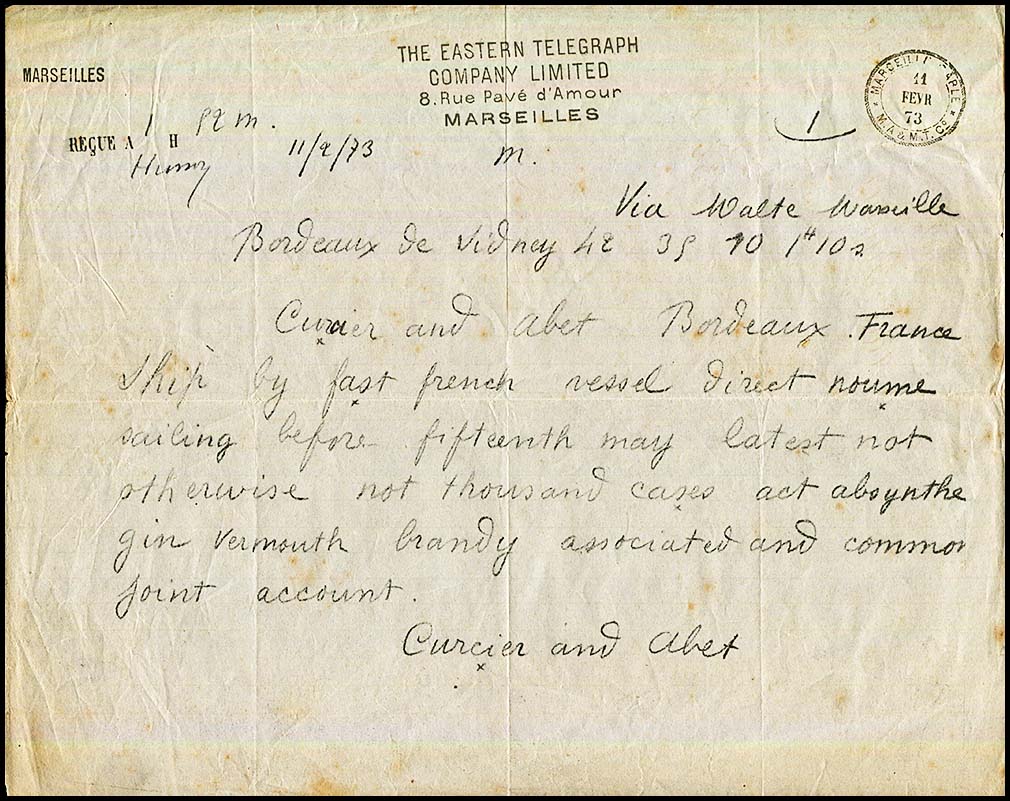 THE EASTERN TELEGRAPH
COMPANY LIMITED
8. Rue Pavé d'Amour
MARSEILLES
MARSEILLES
MARSEILLE CABLE
11
FEVR
73
* M. A & M. T. Co *
1 52 m.
REÇUE A H
11/2/73
m.
1
Via Malte Marseille
Bordeaux de Sidney 42 35 10 1H 10s
Curcier and Abet Bordeaux. France
Ship by fast french vessel direct noume
sailing before fifteenth may latest not
otherwise not thousand cases act absynthe
gin Vermouth brandy associated and common
joint account.
Curcier and Abet